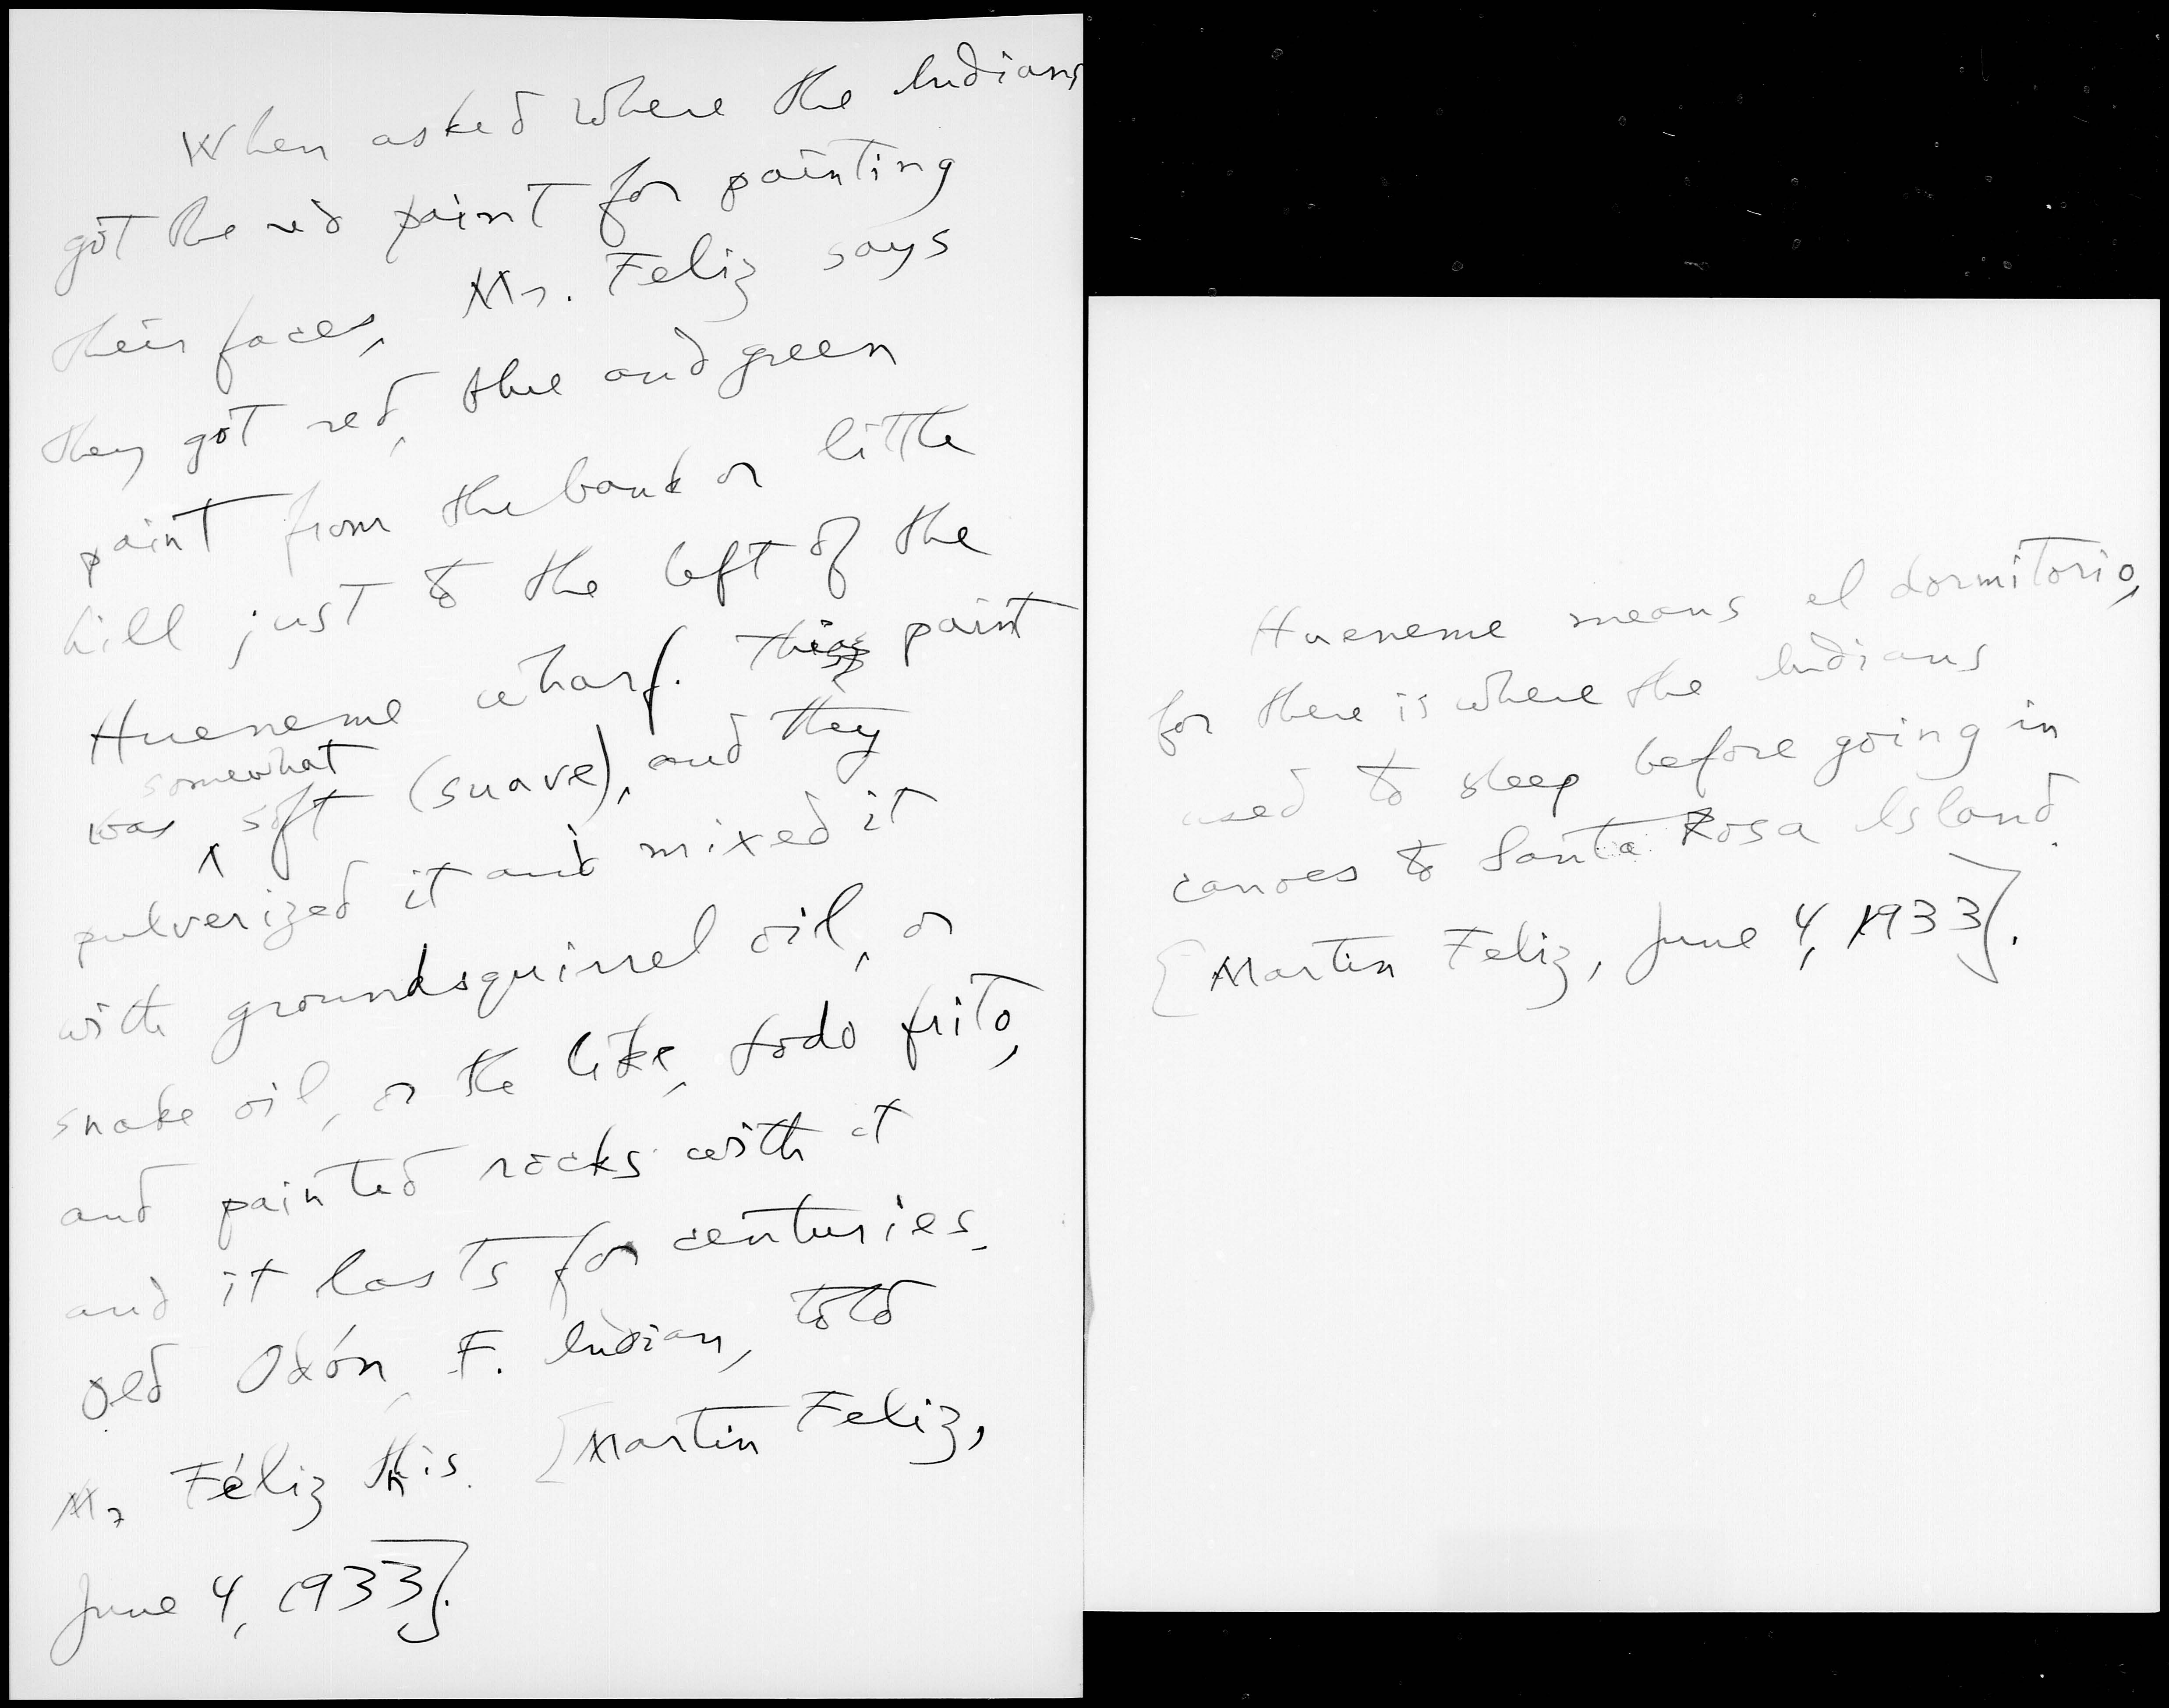 When asked where the Indians
got the red paint for painting
their faces, Mr. Feliz says
they got red, blue and green
paint from the bank or little
hill just to the left of the
Hueneme wharf. This paint
was somewhat soft (suave), and they
pulverized it and mixed it
with groundsquirrel oil, or
snake oil, or the like, todo frito,
and painted rocks with it
and it lasts for centuries.
Old Odón, F. Indian, told
Mr Féliz this. [Martin Feliz,
June 4, 1933].
Hueneme means el dormitorio,
for there is where the Indians
used to sleep before going in
canoes to Santa Rosa Island.
[Martin Feliz, June 4, 1933].